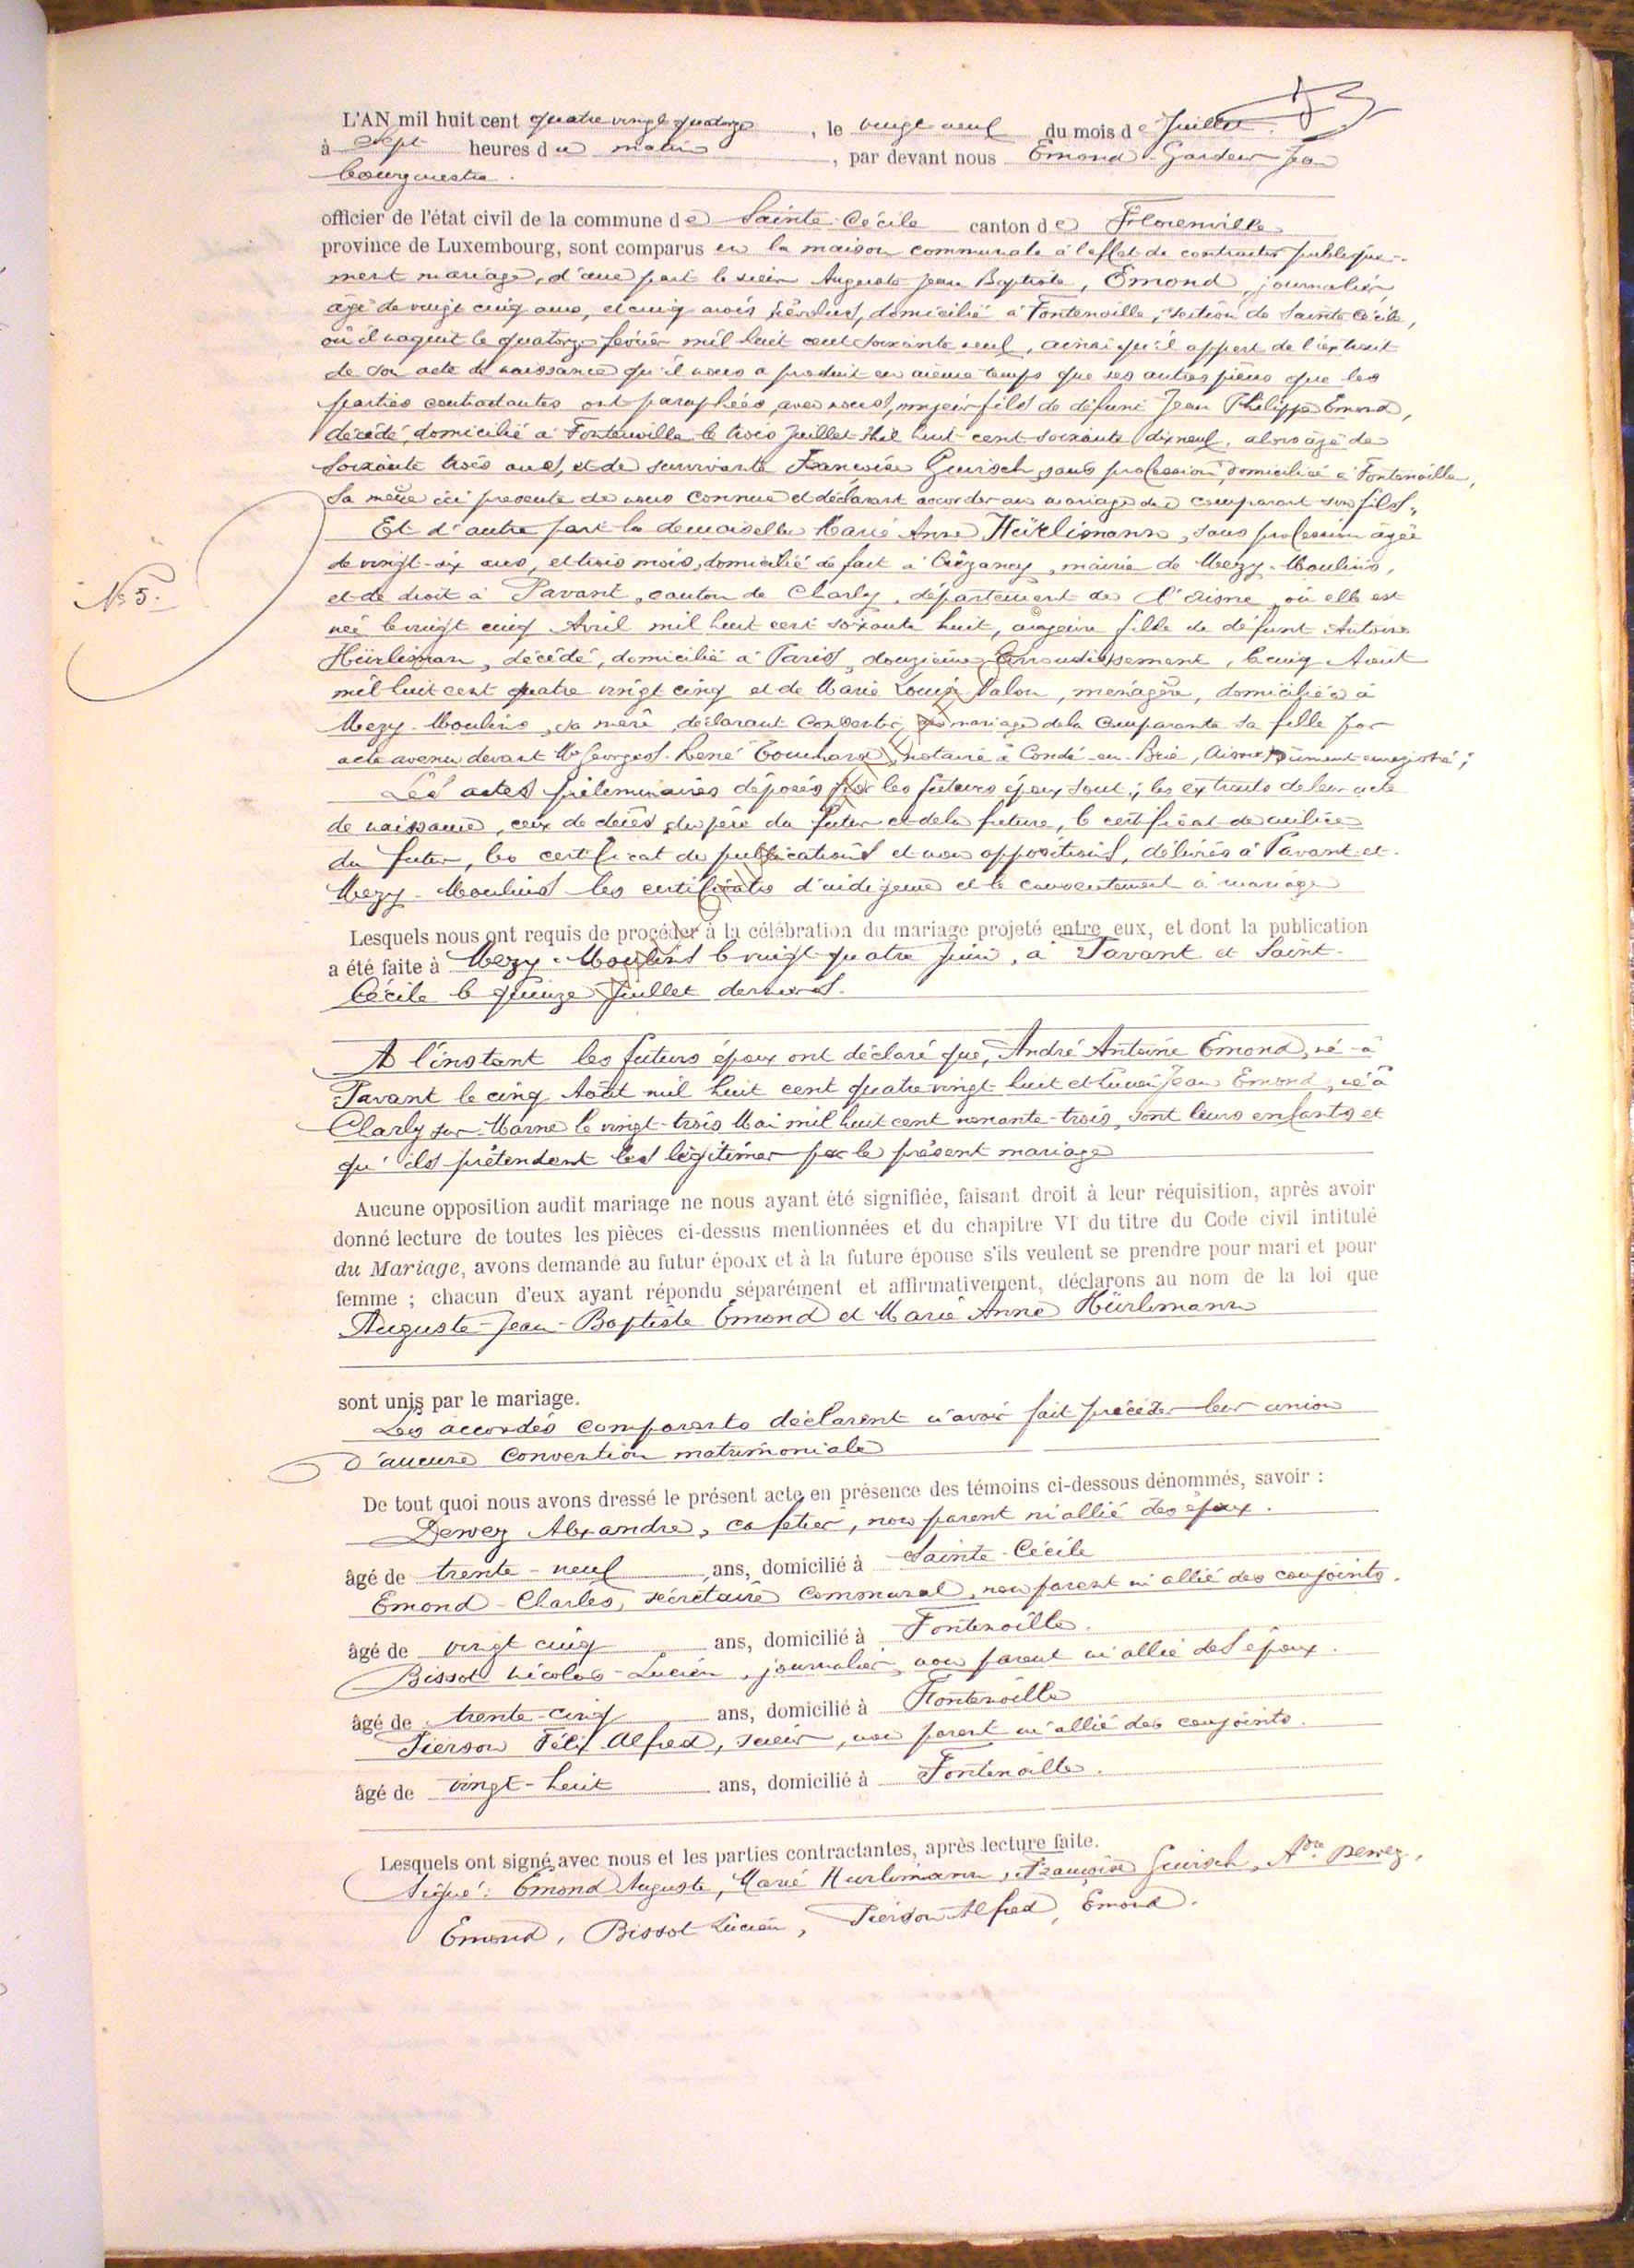 L'AN mil huit cent quatre vingt quatorze, le vingt neuf du mois de Juillet.
à sept heures du matin, par devant nous Emond-Gardeur Jean
bourgmestre.
officier de l'état civil de la commune de Sainte-Cécile canton de Florenville
province de Luxembourg, sont comparus en la maison communale à l'effet de contracter publique-
ment mariage, d'une part le sieur Auguste Jean Baptiste, Emond, journalier
âgé de vingt cinq ans, et cinq mois révolus, domicilié à Fontenoille, section de Sainte Cécile,
où il naquit le quatorze février mil huit cent soixante neuf, ainsi qu'il appert de l'extrait
de son acte de naissance qu'il nous a produit en même temps que les autres pièces que les
parties contractantes ont paraphées avec nous, majeur fils de défunt Jean Philippe Emond,
décédé, domicilié à Fontenoille le trois Juillet Mil huit cent soixante dix neuf, alors âgé de
soixante trois ans, et de survivante Françoise Guirsch, sans profession, domiciliée à Fontenoille,
sa mère ici présente de nous connue et déclarant accorder au mariage du comparant son fils.,
Et d'autre part la demoiselle Marie Anne Hürlimann, sans profession âgée
de vingt-six ans, et trois mois, domicilié de fait à Crézancy, mairie de Mezy-Moulins,
et de droit à Pavant, canton de Charly, département de l'Aisne, où elle est
née le vingt cinq Avril mil huit cent soixante huit, majeure fille de défunt Antoine
Hürlimann, décédé, domicilié à Paris, douzième arrondissement, le cinq Août
mil huit cent quatre vingt cinq et de Marie Louise Valon, ménagère, domiciliée à
Mezy-Moulins, sa mère, déclarant consentir au mariage de la comparante sa fille par
acte avenu devant Me Georges-René Bouchard, notaire à Condé-en-Brie, Aisne, dûment enregistré;
Les actes préliminaires déposés par les futurs époux sont; les extraits de leur acte
de naissance, ceux de décès du père du futur et de la future, le certificat de milice
du futur, les certificat de publications et non oppositions, délivrés à Pavant et
Mezy-Moulins les certificats d'indigence et le consentement à mariage
Lesquels nous ont requis de procéder à la célébration du mariage projeté entre eux, et dont la publication
a été faite à Mezy-Moulins le vingt-quatre juin, à Pavant et Saint-
Cécile le quinze Juillet derniers.
A l'instant les futurs époux ont déclaré que, André Antoine Emond, né à
Pavant le cinq Août mil huit cent quatre-vingt-huit et Lucien Jean Emond, né à
Charly sur-Marne le vingt-trois Mai mil huit cent nonante-trois, sont leurs enfants et
qu'ils prétendent les légitimer par le présent mariage
Aucune opposition audit mariage ne nous ayant été signifiée, faisant droit à leur réquisition, après avoir
donné lecture de toutes les pièces ci-dessus mentionnées et du chapitre VI du titre du Code civil intitulé
du Mariage, avons demandé au futur époux et à la future épouse s'ils veulent se prendre pour mari et pour
femme ; chacun d'eux ayant répondu séparément et affirmativement, déclarons au nom de la loi que
Auguste-Jean-Baptiste Emond et Marie Anne Hürlimann
sont unis par le mariage.
Les accordés comparants déclarent n'avoir fait précéder leur union
d'aucune convention matrimoniale
De tout quoi nous avons dressé le présent acte en présence des témoins ci-dessous dénommés, savoir :
Dewez Alexandre, cafetier, non parent ni allié des époux.
âgé de trente-neuf ans, domicilié à Sainte-Cécile
Emond-Charles, secrétaire communal, non parent ni allié des conjoints.
âgé de vingt cinq ans, domicilié à Fontenoille.
Bissot Nicolas-Lucien, journalier, non parent ni allié des époux.
âgé de trente-cinq ans, domicilié à Fontenoille
Pierson Félix Alfred, scieur, non parent ni allié des conjoints.
âgé de vingt-huit ans, domicilié à Fontenoille.
Lesquels ont signé avec nous et les parties contractantes, après lecture faite.
Signé: Emond Auguste, Marie Hurlimann, Françoise Guirsch, Adre Dewez,
Emond, Bissot Lucien, Pierson Alfred, Emond.
N° 5.